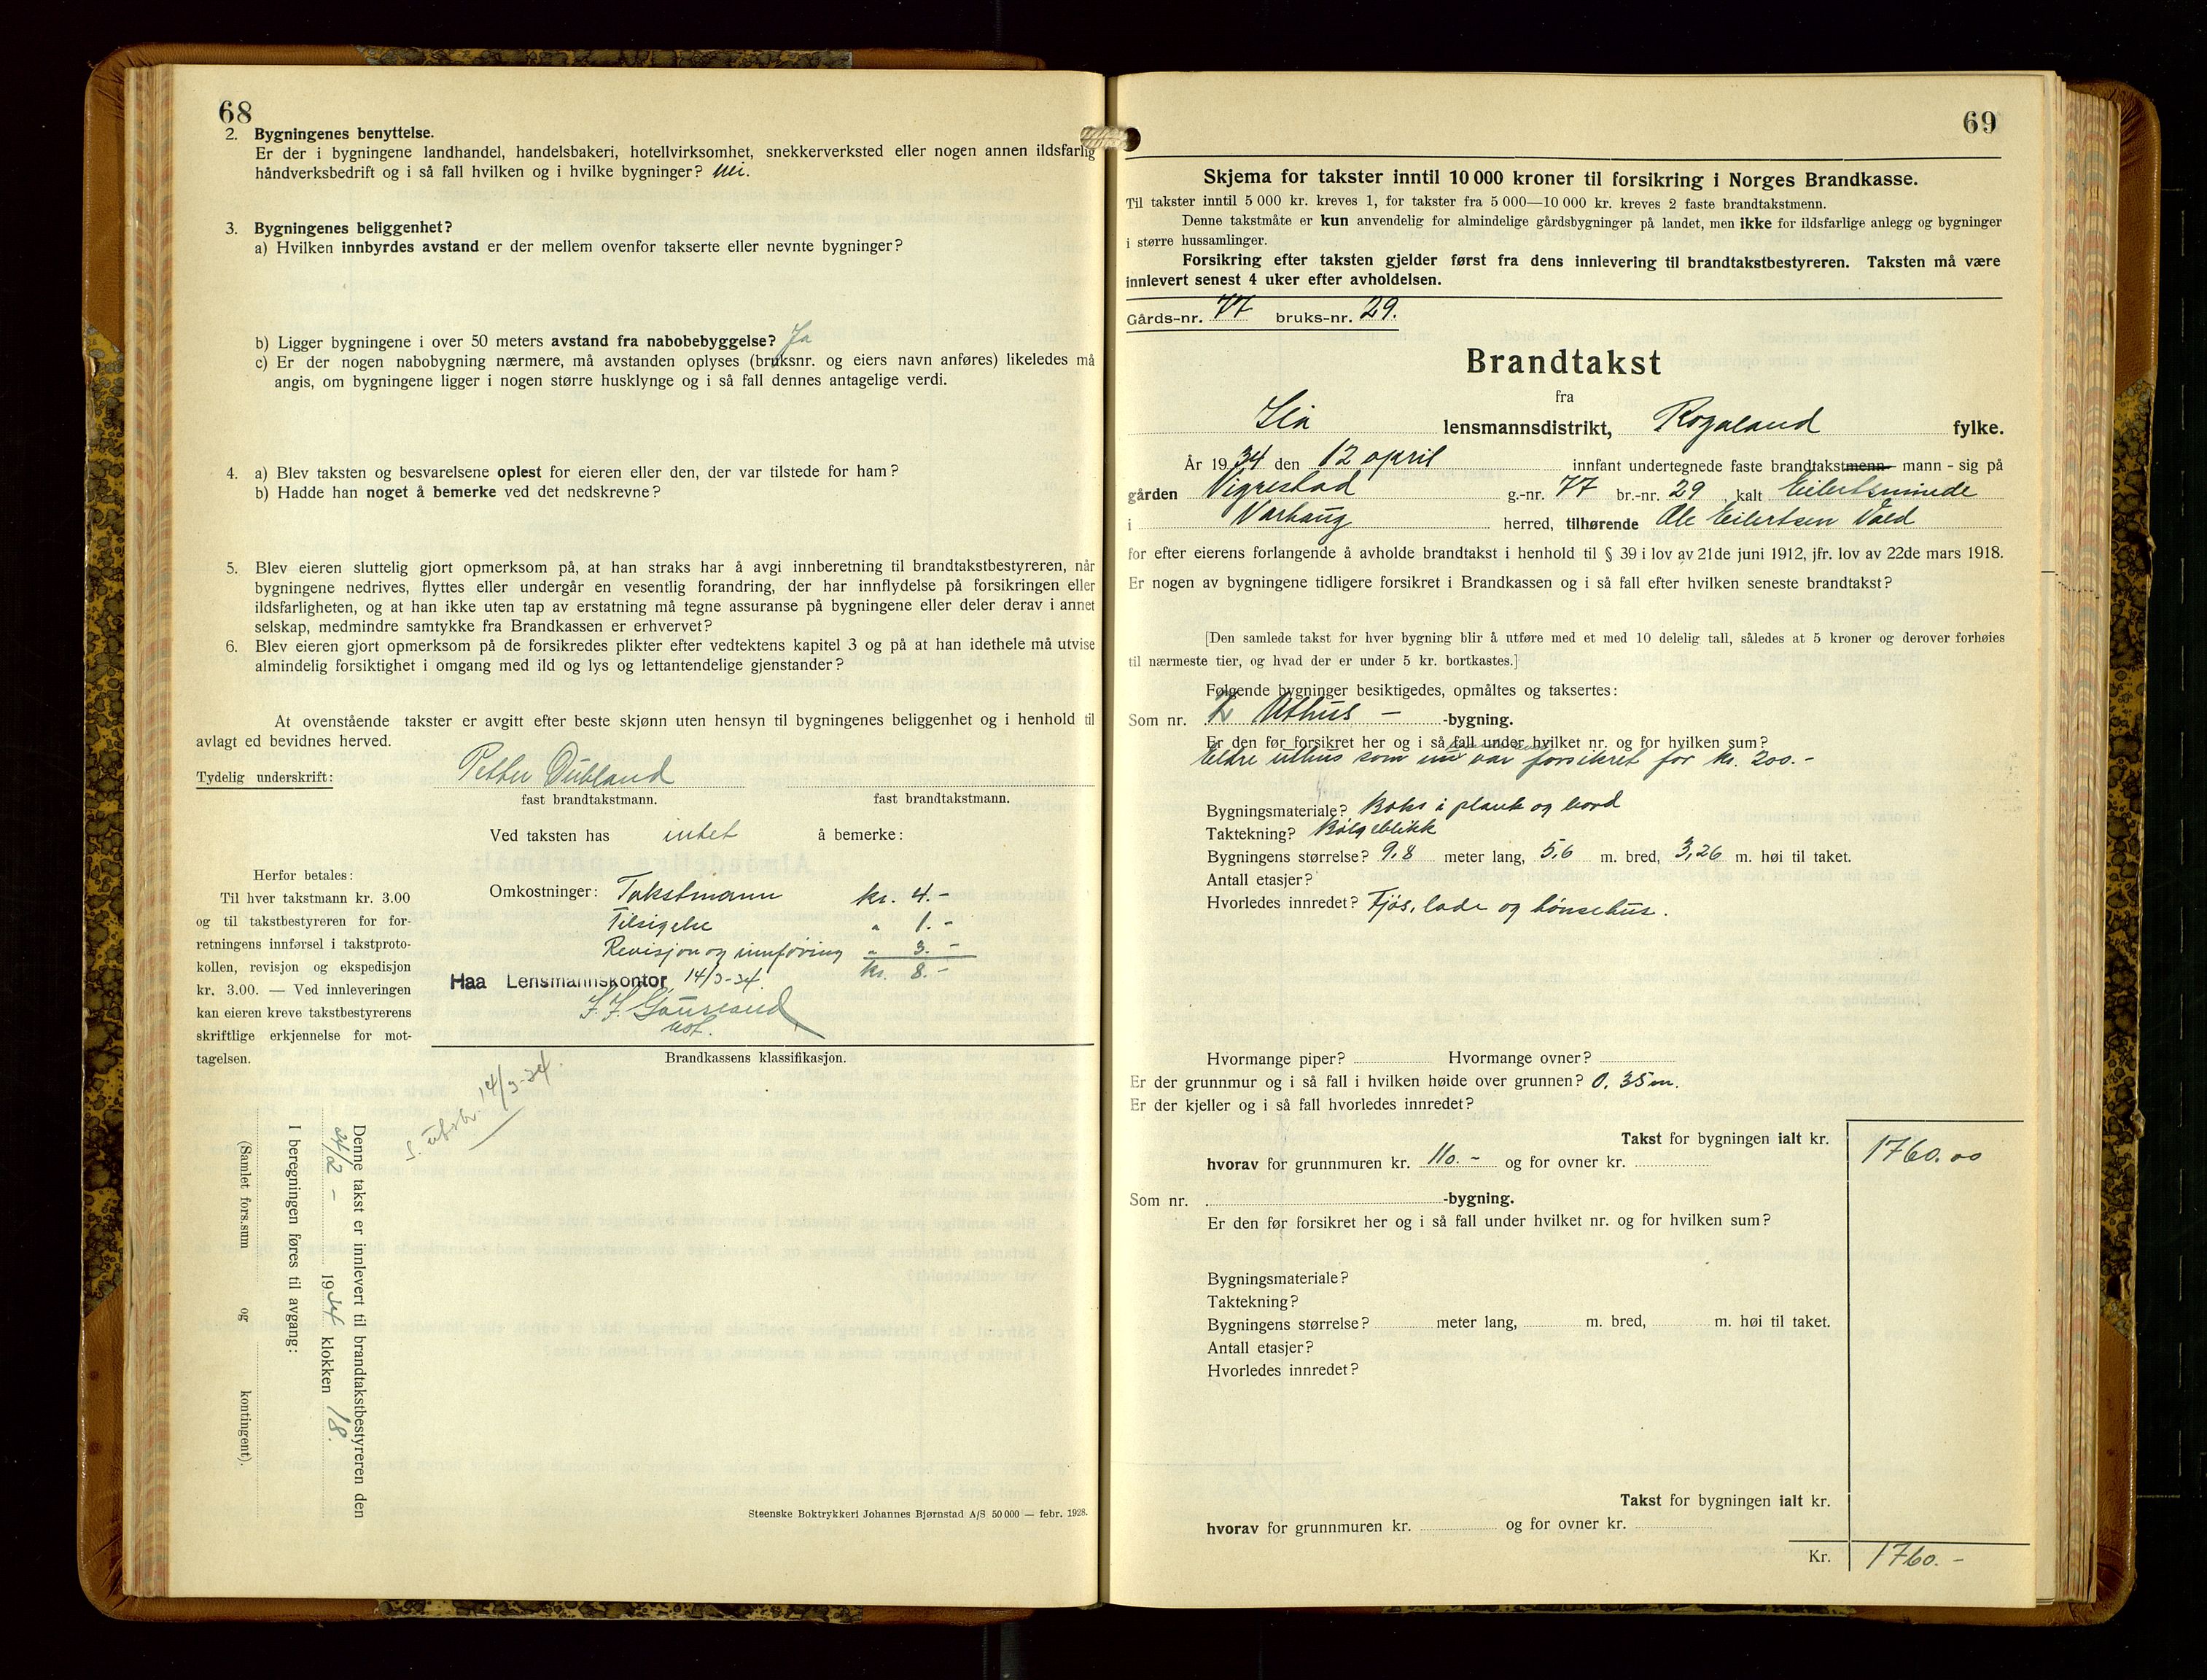 68
2. Bygningenes benyttelse.
Er der i bygningene landhandel, handelsbakeri, hotellvirksomhet, snekkerverksted eller nogen annen ildsfarlig
håndverksbedrift og i så fall hvilken og i hvilke bygninger? Nei.
3. Bygningenes beliggenhet?
a) Hvilken innbyrdes avstand er der mellem ovenfor takserte eller nevnte bygninger?
b) Ligger bygningene i over 50 meters avstand fra nabobebyggelse? Ja
c) Er der nogen nabobygning nærmere, må avstanden oplyses (bruksnr. og eiers navn anføres) likeledes må
angis, om bygningene ligger i nogen større husklynge og i så fall dennes antagelige verdi.
4. a) Blev taksten og besvarelsene oplest for eieren eller den, der var tilstede for ham?
b) Hadde han noget å bemerke ved det nedskrevne?
5. Blev eieren sluttelig gjort opmerksom på, at han straks har å avgi innberetning til brandtakstbestyreren, når
bygningene nedrives, flyttes eller undergår en vesentlig forandring, der har innflydelse på forsikringen eller
ildsfarligheten, og at han ikke uten tap av erstatning må tegne assuranse på bygningene eller deler derav i annet
selskap, medmindre samtykke fra Brandkassen er erhvervet?
6. Blev eieren gjort opmerksom på de forsikredes plikter efter vedtektens kapitel 3 og på at han idethele må utvise
almindelig forsiktighet i omgang med ild og lys og lettantendelige gjenstander?
At ovenstående takster er avgitt efter beste skjønn uten hensyn til bygningenes beliggenhet og i henhold til
avlagt ed bevidnes herved.
Tydelig underskrift: Petter Dubland
fast brandtakstmann. fast brandtakstmann.
Ved taksten has intet å bemerke:
Herfor betales:
Til hver takstmann kr. 3.00
og til takstbestyreren for for-
retningens innførsel i takstproto-
kollen, revisjon og ekspedisjon
kr. 3.00. — Ved innleveringen
kan eieren kreve takstbestyrerens
skriftlige erkjennelse for mot-
tagelsen.
Omkostninger: Takstmann kr. 4.-
Tilsigelse " 1.-
Revisjon og innføring " 3.-
kr. 8.-
Haa Lensmannskontor, 14/3-34.
Brandkassens klassifikasjon.
14/3-34.
Denne takst er innlevert til brandtakstbestyreren den
1934 klokken 18.
I beregningen føres til avgang:
(Samlet fors.sum og kontingent).
Steenske Boktrykkeri Johannes Bjørnstad A/S 50 000 — febr. 1928.
69
Skjema for takster inntil 10 000 kroner til forsikring i Norges Brandkasse.
Til takster inntil 5 000 kr. kreves 1, for takster fra 5 000—10 000 kr. kreves 2 faste brandtakstmenn.
Denne takstmåte er kun anvendelig for almindelige gårdsbygninger på landet, men ikke for ildsfarlige anlegg og bygninger
i større hussamlinger.
Forsikring efter taksten gjelder først fra dens innlevering til brandtakstbestyreren. Taksten må være
innlevert senest 4 uker efter avholdelsen.
Gårds-nr. 77 bruks-nr. 29.
Brandtakst
fra
lensmannsdistrikt, Rogaland fylke.
År 1934 den 12 april innfant undertegnede faste brandtakstmenn mann - sig på
gården Vigrestad g.-nr. 77 br.-nr. 29, kalt Eilertsminde
i Varhaug herred, tilhørende Ole Eilertsen Vold
for efter eierens forlangende å avholde brandtakst i henhold til § 39 i lov av 21de juni 1912, jfr. lov av 22de mars 1918.
Er nogen av bygningene tidligere forsikret i Brandkassen og i så fall efter hvilken seneste brandtakst?
[Den samlede takst for hver bygning blir å utføre med et med 10 delelig tall, således at 5 kroner og derover forhøies
til nærmeste tier, og hvad der er under 5 kr. bortkastes.]
Følgende bygninger besiktigedes, opmåltes og taksertes:
Som nr. 2 Uthus - -bygning.
Er den før forsikret her og i så fall under hvilket nr. og for hvilken sum?
Eldre uthus som nu var forsikret for kr. 200.-
Bygningsmateriale? Boks i plank og bord
Taktekning? Bølgeblikk
Bygningens størrelse? 9,8 meter lang, 5,6 m. bred, 3,26 m. høi til taket.
Antall etasjer?
Hvorledes innredet? Fjøs, lade og hønsehus.
Hvormange piper? Hvormange ovner?
Er der grunnmur og i så fall i hvilken høide over grunnen? 0,35 m.
Er der kjeller og i så fall hvorledes innredet?
Takst for bygningen ialt kr. 1760.00
hvorav for grunnmuren kr. 110.- og for ovner kr.
Som nr. -bygning.
Er den før forsikret her og i så fall under hvilket nr. og for hvilken sum?
Bygningsmateriale?
Taktekning?
Bygningens størrelse? meter lang, m. bred, m. høi til taket.
Antall etasjer?
Hvorledes innredet?
Takst for bygningen ialt kr.
hvorav for grunnmuren kr. og for ovner kr.
Kr. 1760.-